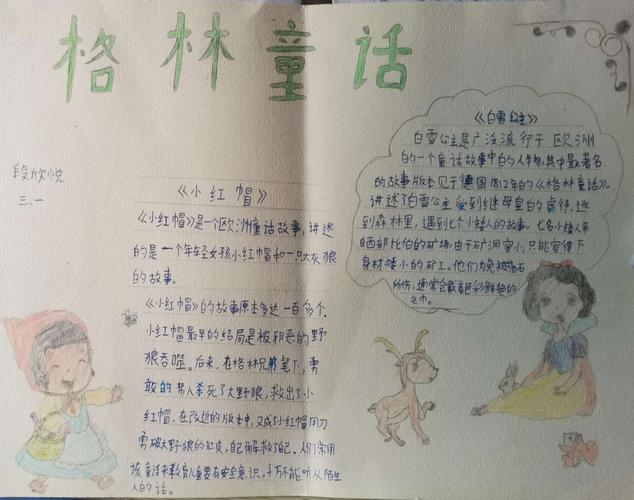 格林童话
段欣悦
三.一
《小红帽》
《小红帽》是个欧洲童话故事,讲述
的是一个年轻女孩小红帽和一只大灰狼
的故事。
《小红帽》的故事原本多达一百多个.
小红帽最早的结局是被邪恶的野
狼吞噬。后来.在格林兄弟笔下,勇
敢的男人杀死了大野狼,救出了小
红帽.在改进的版本中,又成了小红帽用刀
勇破大野狼的肚皮,自己解救了自己.人们常用
该童话来教育儿童要有安全意识,千万不能听从陌生
人的话。
《白雪公主》
白雪公主是广泛流行于欧洲
的一个童话故事中的人物,其中最著名
的故事版本见于德国1812年的《格林童话》。
讲述了白雪公主受到继母皇的虐待,逃
到森林里,遇到七个小矮人的故事。七名小矮人来
西部比伯的矿场,由于矿洞窄小,只能容得下
身材矮小的矿工。他们为免被落石
所伤,通常会戴着色彩鲜艳的
头巾。